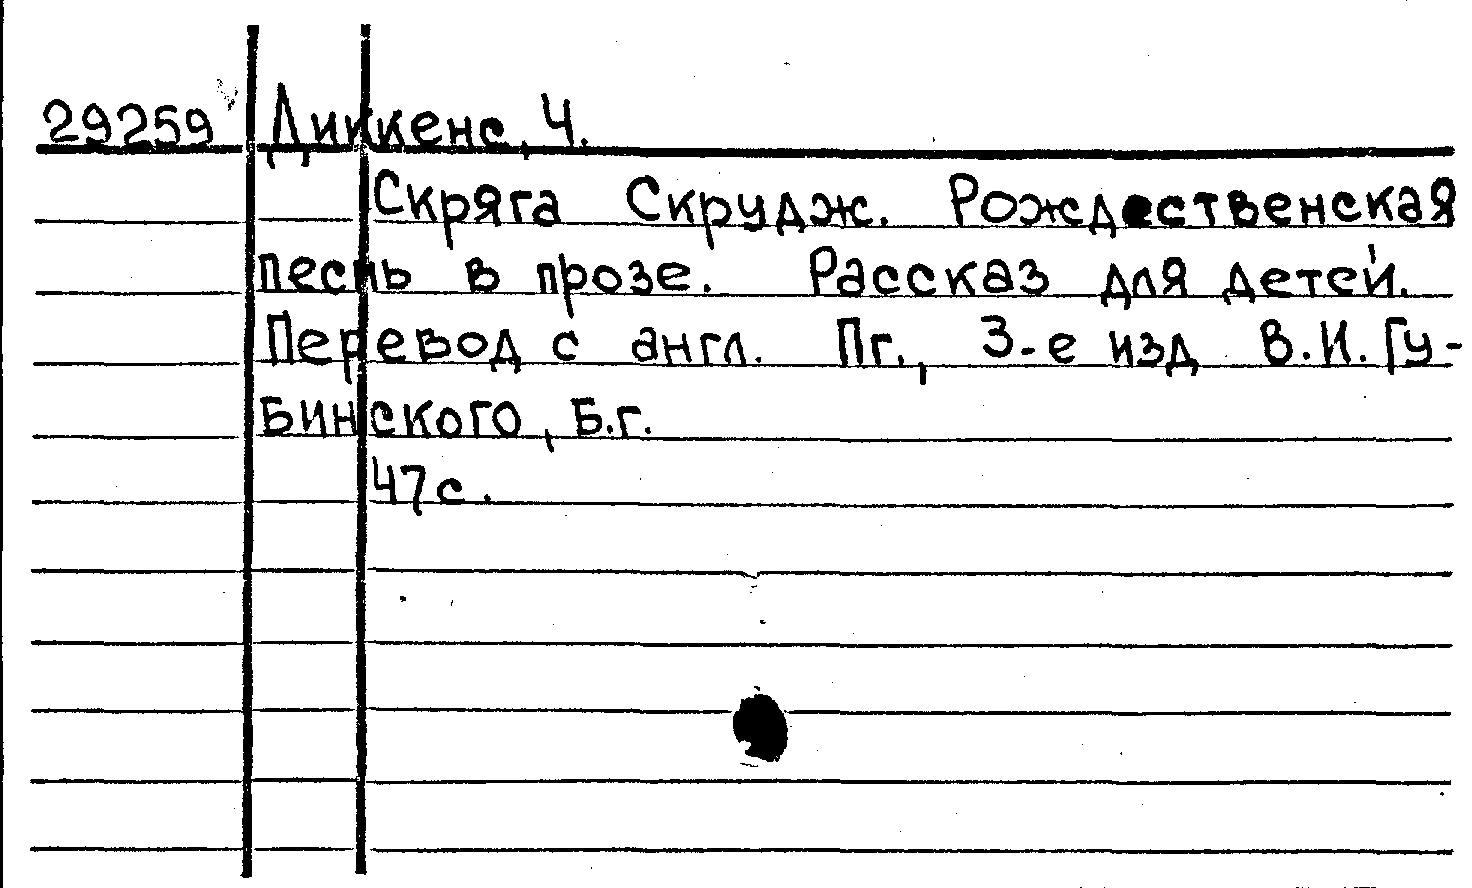 29259 Диккенс, Ч.
Скряга Скрудж. Рождественская
песнь в прозе. Рассказ для детей.
Перевод с англ. Пг., 3-е изд В.И.Гу-
бинского, Б.г.
47 с.